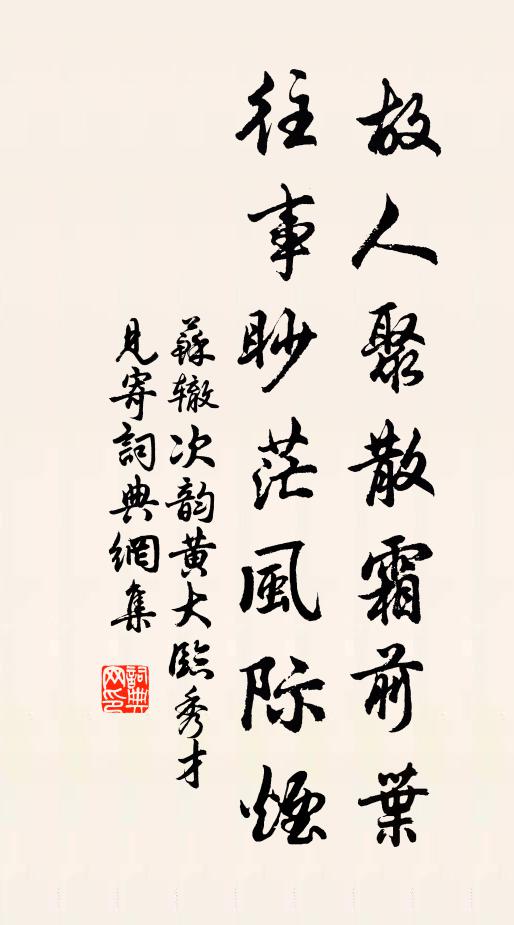 故人聚散霜前葉
往事眇茫風际煙
蘇辙次韵黄大臨秀才
見寄詞典網集
詞典网印